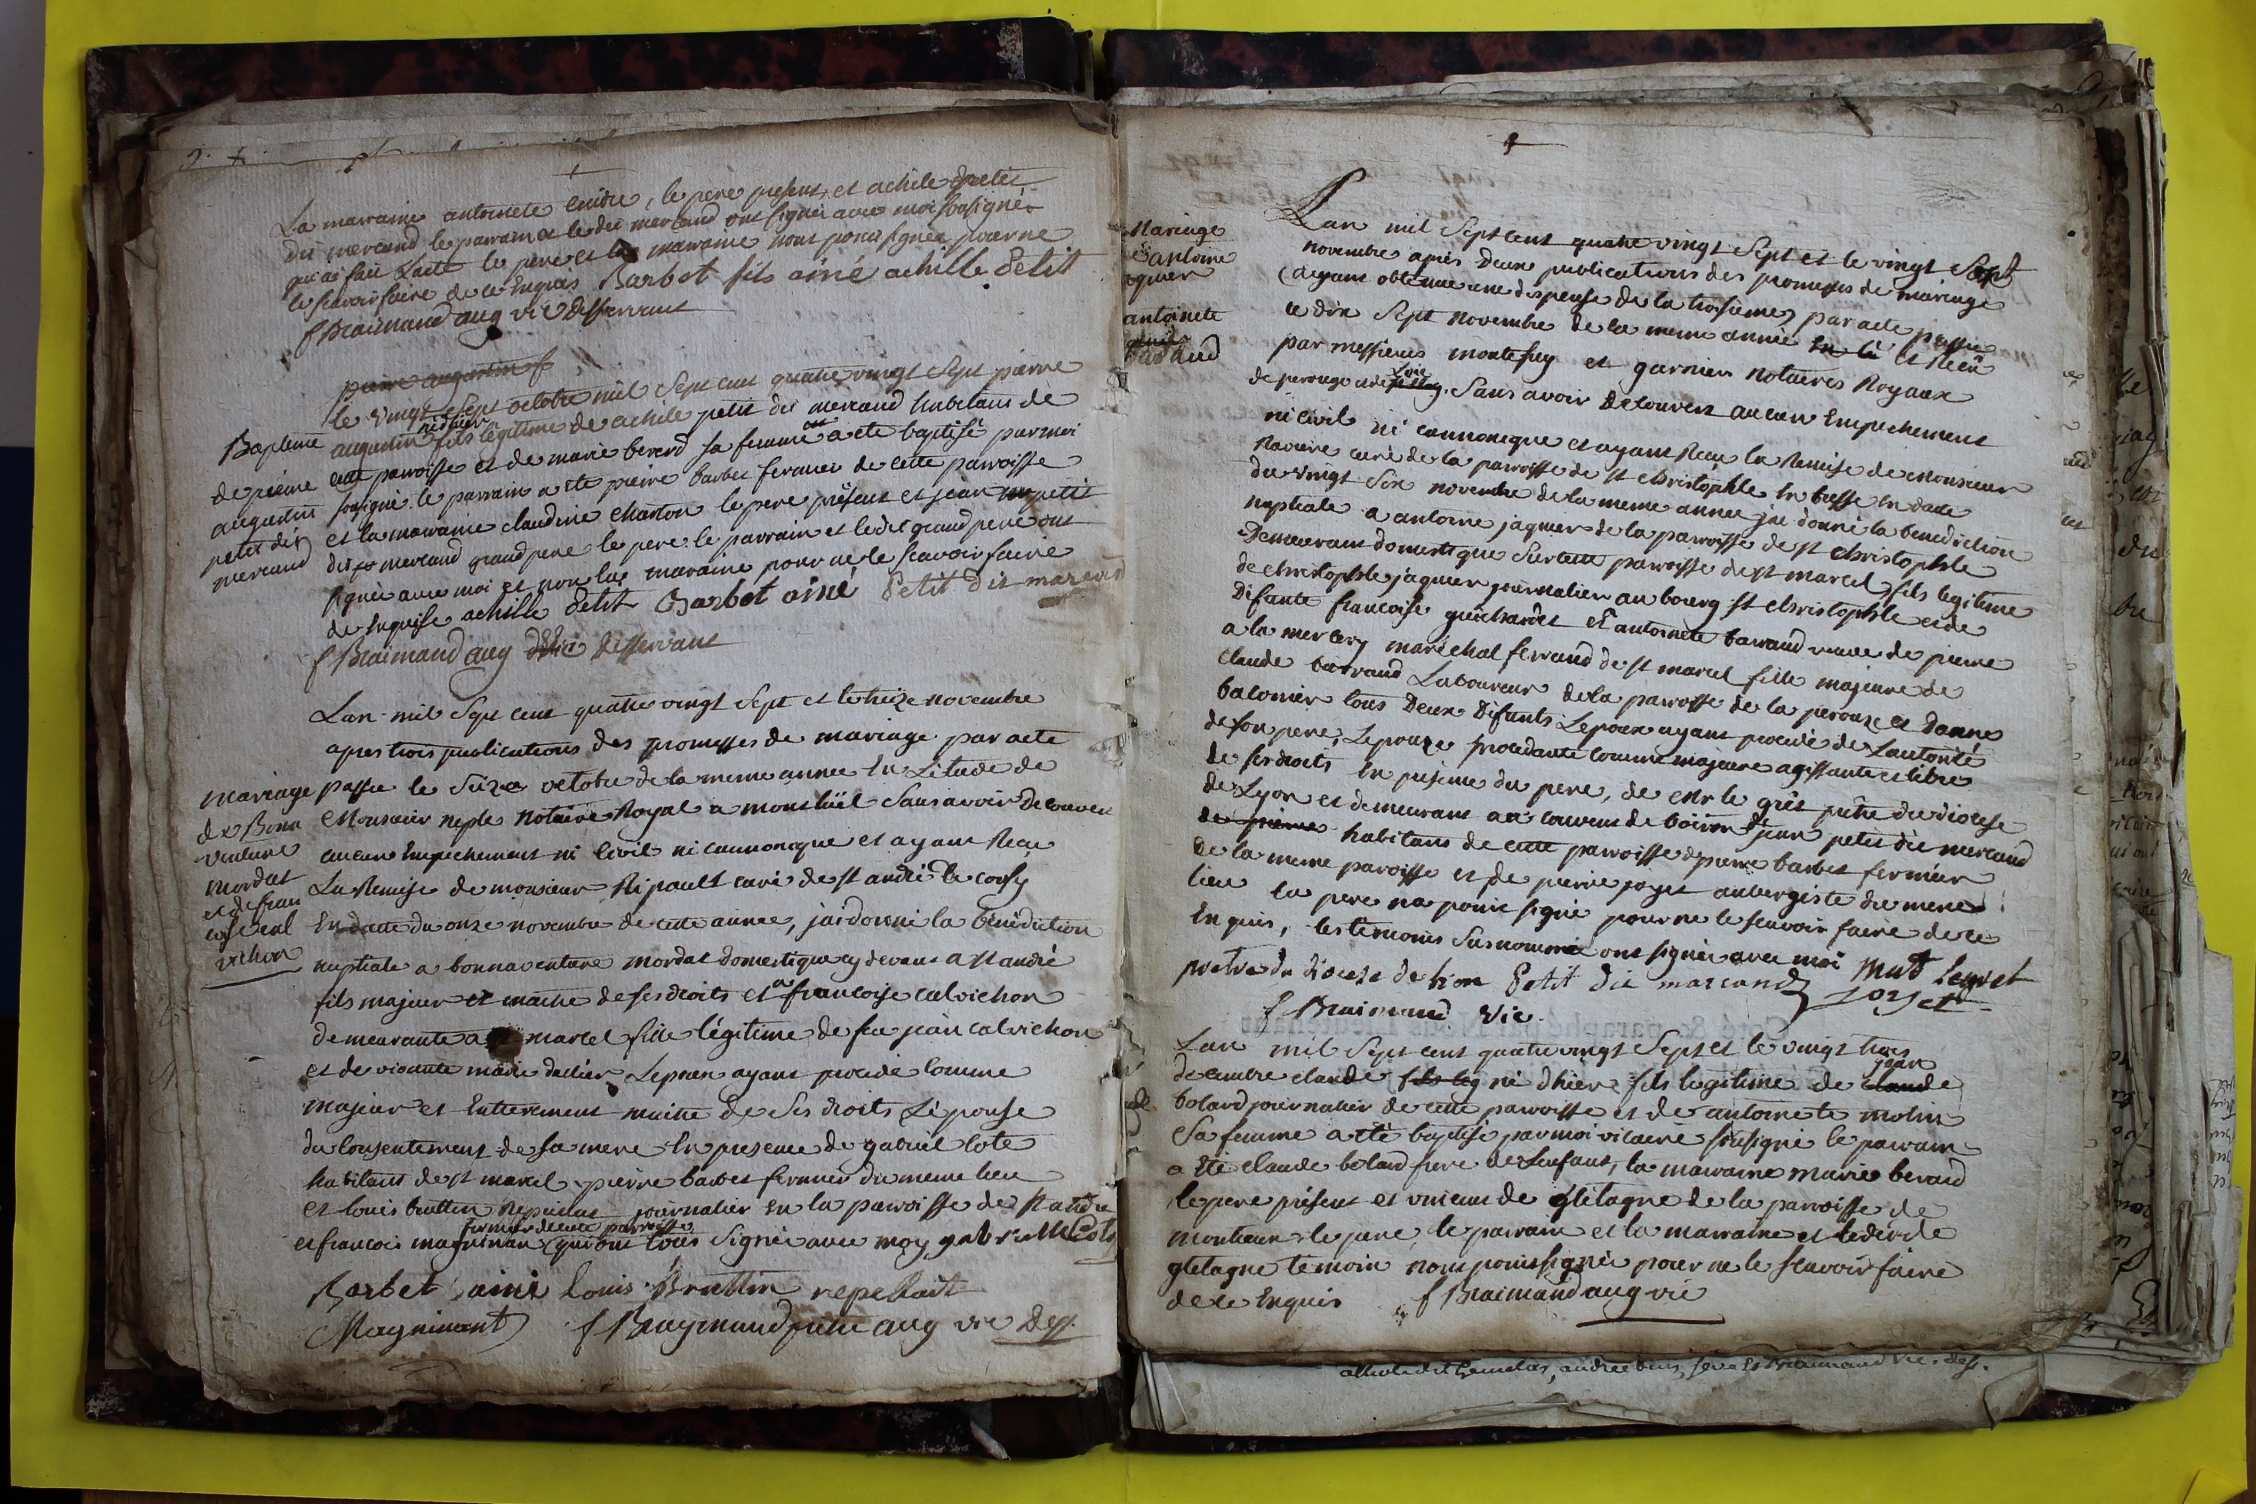 La marraine antoinete cuidre, le pere present, et achile petit
dit mercand le parrain et ledit mercand ont signéz avec moi soussigné
qui ai fait l'acte le pere et la marraine n'ont point signéz pour ne
le scavoir faire de ce enquis Barbet fils ainé achille Petit
f Braimand aug vic desservant
pierre augustin f
le vingt sept octobre mil sept cent quatre vingt sept pierre
augustin né d'hier fils légitime de achile petit dit mercand habitant de
cette parroisse et de marie berard sa femme a été baptisé par moi
soussigné le parrain a été pierre barbet fermier de cette parroisse
et la marraine claudine charton le pere présent et jean petit
dit mercand grand pere le pere le parrain et ledit grand pere ont
signéz avec moi et non la marraine pour ne le scavoir faire
de enquise achille Petit Barbet ainé Petit dit marcand
f Braimand aug vic desservant
Bapteme
de pierre
augustin
petit dit
mercand
L'an mil sept cent quatre vingt sept et le treize novembre
apres trois publications des promesses de mariage par acte
passé le seize octobre de la meme annee en l'étude de
Monsieur neple notaire Royal a montluël sans avoir decouvert
aucun empechement ni civil ni cannonique et ayant Recu
La Remise de monsieur Ripault curé de st andré de corsy
en datte du onze novembre de cette année, j'ai donné la bénédiction
nuptiale a bonnaventure mordat domestique cy devant a st andré
fils majeur et maitre de ses droits et a francoise calvichon
demeurante a st marcel fille légitime de feu jean calvichon
et de vivante marie dallier L'epoux ayant procédé comme
majeur et entierement maitre de ses droits L'épouse
du consentement de sa mere en presence de gabriel cote
habitant de st marcel pierre barbet fermier du meme lieu
et louis bruttin Repellat journalier en la parroisse de st andre
fermier de cette parroisse
et francois magninan qui ont tous signéz avec moy gabrielle Cote
Barbet ainé louis Bruttin repellait
Magninant f Braymand pretre aug vic dess.
mariage
de Bona
venture
mordat
et de fran
coise cal
vichon
L'an mil sept cent quatre vingt sept et le vingt sept
novembre après deux publications des promesses de mariage
(ayant obtenue une dispense de la troisieme) par acte passé
le dix sept novembre de la meme année et Recu
par messieurs montesuy et garnier notaires Royaux
de perouge et de Loie sans avoir decouvert aucun empechement
ni civil ni cannonique et ayant Recu la Remise de Monsieur
Raviere curé de la parroisse de st christophle en bresse en date
du vingt six novembre de la meme année j'ai donné la benediction
nuptiale a antoine jaquier de la parroisse de st christophle
Demeurant domestique sur cette parroisse de st marcel, fils legitime
de christophle jaquier journalier au bourg st christophle et de
difante francoise guichardet et antoinete barraud veuve de pierre
a la mercery maréchal ferrand de st marcel fille majeure de
claude barraud Laboureur de la parroisse de la perouze et d'anne
balomier tous deux difants L'epoux ayant procédé de L'autorité
de son pere, L'epouze procedante comme majeure agissante et libre
de ses droits en présence du pere, de Mr le grét prêtre du diocese
de Lyon et demeurant au couvent de boiron de jean petit dit mercand
de pierre habitant de cette parroisse de pierre barbet fermier
de la meme paroisse et de pierre joyet aubergiste du meme
lieu le pere n'a point signé pour ne le scavoir faire de ce
enquis, les temoins susnommé ont signéz avec moi
pretre du diocese de lion Petit dit marcand joyet
f Braimand vic.
Mariage
d'antoine
jaquier
antoinete
barraud
L'an mil sept cent quatre vingt sept et le vingt trois
decembre claude fils leg né d'hier fils legitime de jean
bolard journalier de cette parroisse et de antoinete molin
sa femme a été baptisé par moi vicaire soussigné le parrain
a été claude bolard frere de l'enfant, la marraine marie berard
le pere présent et vincent de gletagne de la parroisse de
montieux le pere, le parrain et la marraine et ledit de
gletagne temoin n'ont point signéz pour ne le scavoir faire
de ce enquis f Braimand aug vic